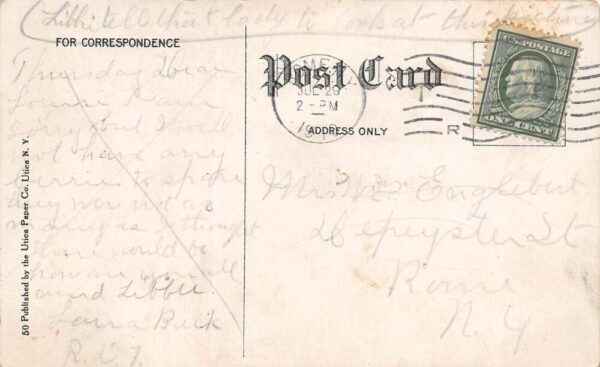 (Libbie tell that lady to look at this picture
FOR CORRESPONDENCE
Post Card
ADDRESS ONLY
ROME
JUL 29
2 - PM
U.S. POSTAGE
ONE CENT
R
Thursday Dear
Louise
sorry but I will
not have any
berries to spare
they were not as
many as I thought
there would be
how are you all
and Libbie.
Laura Buck
R.D.7.
Mrs Wm Englebert
Depeyster St
Rome
N.Y.
50 Published by the Utica Paper Co. Utica N. Y.